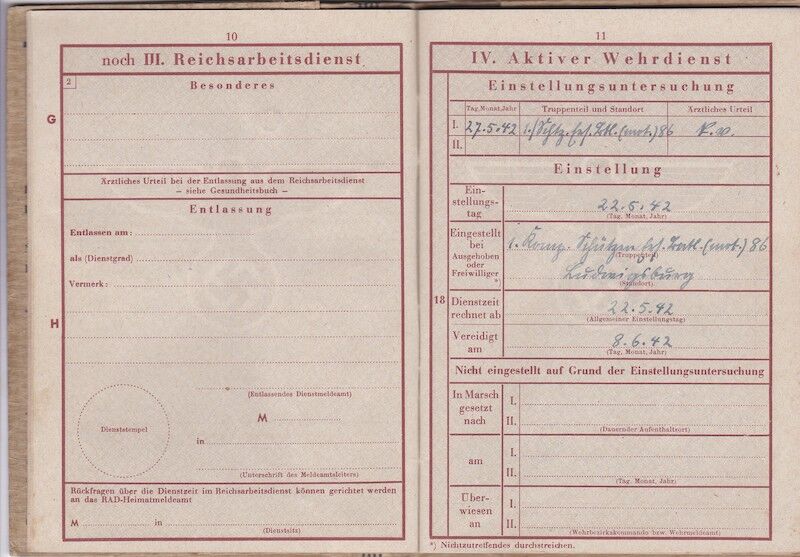 10
noch III. Reichsarbeitsdienst
2
Besonderes
G
Ärztliches Urteil bei der Entlassung aus dem Reichsarbeitsdienst
– siehe Gesundheitsbuch –
Entlassung
Entlassen am:
als (Dienstgrad)
Vermerk:
H
(Entlassendes Dienstmeldeamt)
M
Dienststempel
in
(Unterschrift des Meldeamtsleiters)
Rückfragen über die Dienstzeit im Reichsarbeitsdienst können gerichtet werden
an das RAD-Heimatmeldeamt
M in
(Dienstsitz)
11
IV. Aktiver Wehrdienst
Einstellungsuntersuchung
Tag, Monat, Jahr Truppenteil und Standort Ärztliches Urteil
I. 27.5.42 1./Schtz. Ers. Btl. (mot.) 86 k.v.
II.
Einstellung
Ein-
stellungs-
tag
22.5.42
(Tag, Monat, Jahr)
Eingestellt
bei
Ausgehoben
oder
Freiwilliger
*)
1. Komp. Schützen Ers. Batl. (mot.) 86
(Truppenteil)
Ludwigsburg
(Standort)
18
Dienstzeit
rechnet ab
22.5.42
(Allgemeiner Einstellungstag)
Vereidigt
am
8.6.42
(Tag, Monat, Jahr)
Nicht eingestellt auf Grund der Einstellungsuntersuchung
In Marsch
gesetzt
nach
I.
II.
(Dauernder Aufenthaltsort)
am
I.
II.
(Tag, Monat, Jahr)
Über-
wiesen
an
I.
II.
(Wehrbezirkskommando bzw. Wehrmeldeamt)
*) Nichtzutreffendes durchstreichen.